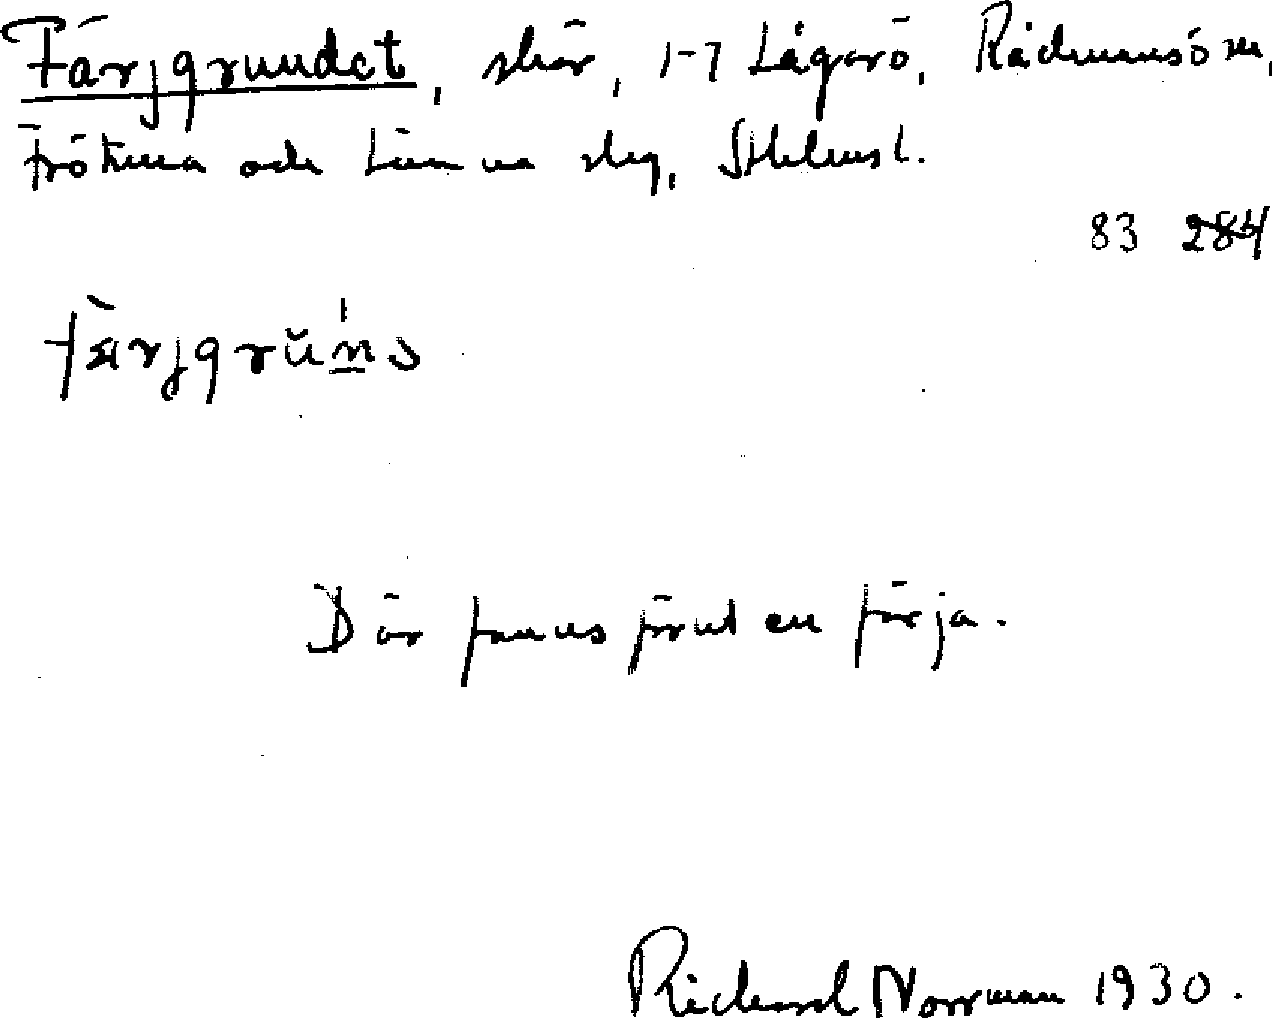 Färjgrundet, skär, 1-7 Lågarö, Rådmansö sn,
Frötuna och Länna skg, Sthlms l.
83 284
färjgrŭns
Där fanns förut en färja.
Richard Norrman 1930.